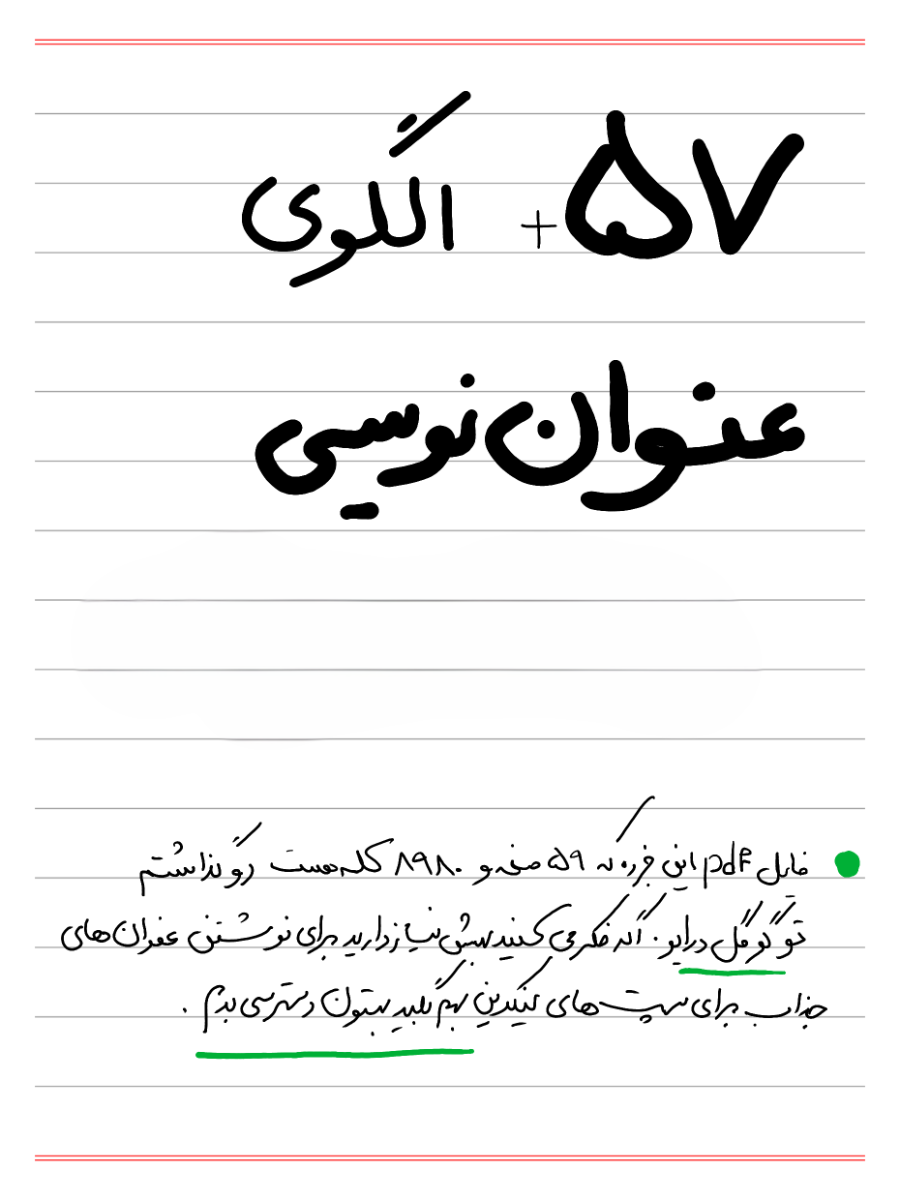 ۵۷+ الگوی
عنوان نویسی
فایل pdf این جزوه که ۵۹ صفحه و ۸۹۸۰ کلمه هست رو گذاشتم
تو گوگل درایو. اگه فکر می کنید بهش نیاز دارید برای نوشتن عنوان های
جذاب برای پست های لینکدین بهم بگید بهتون دسترسی بدم.